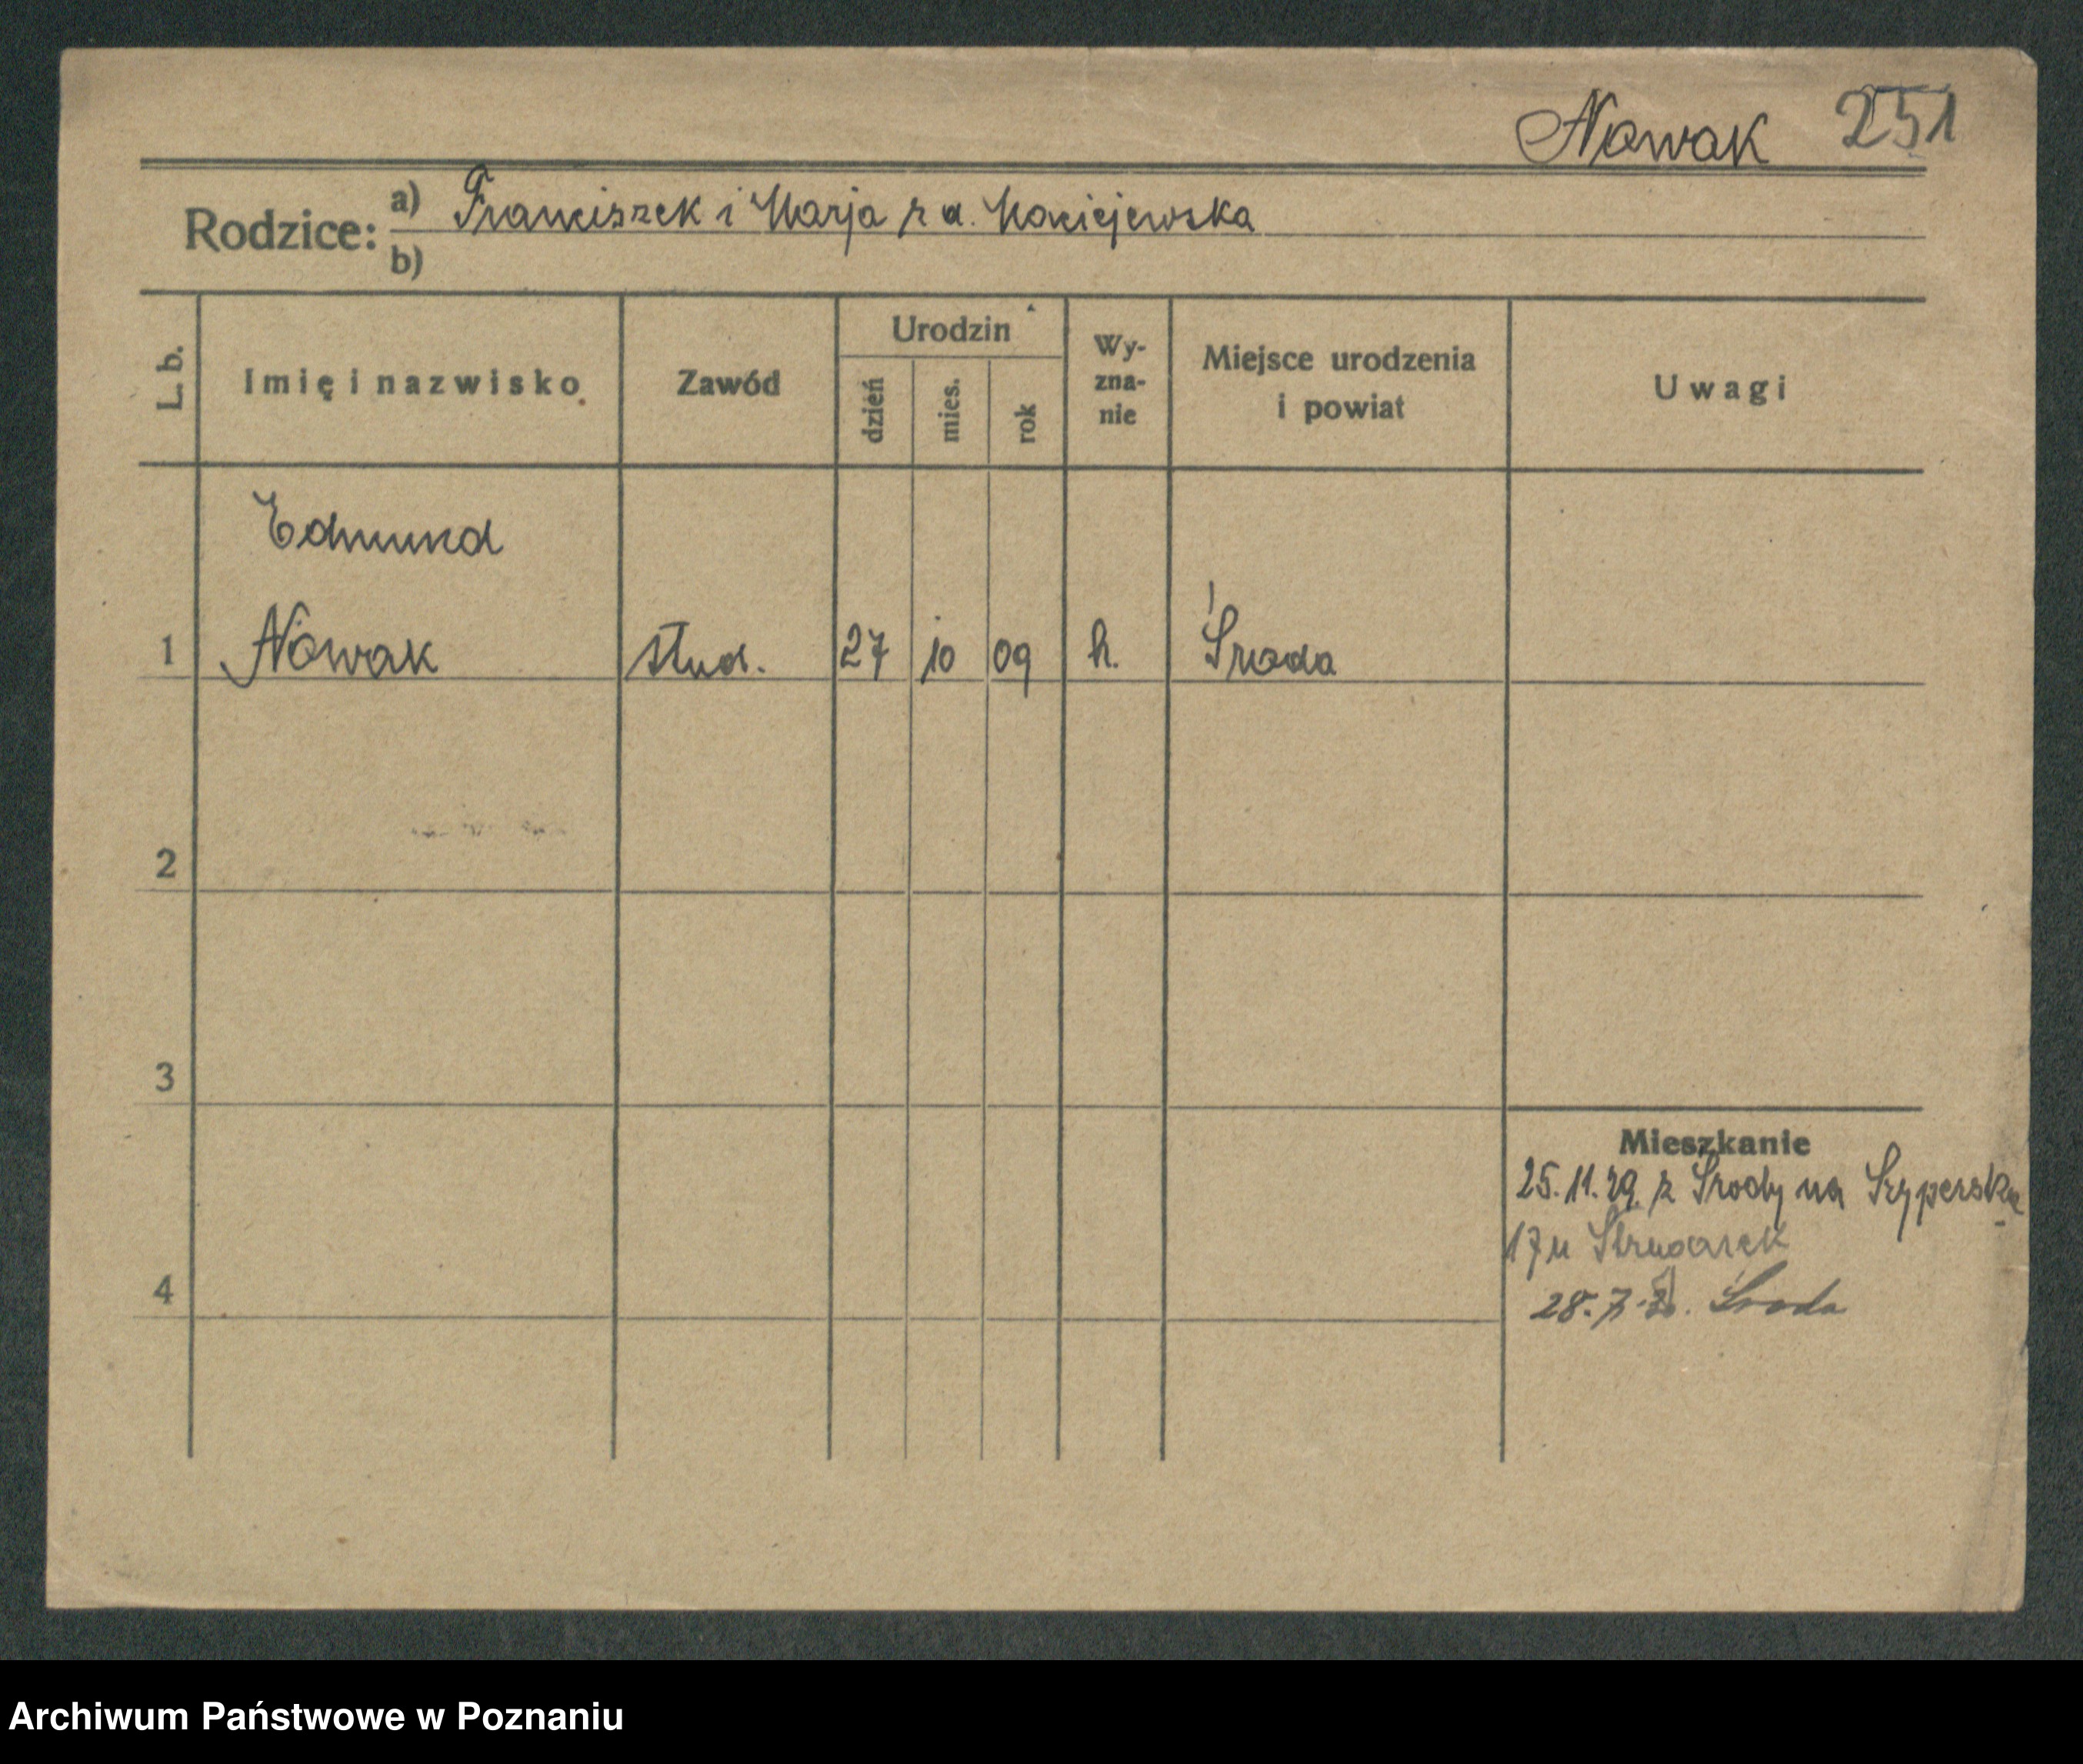 Nowak 251
Rodzice: a) Franciszek i Marja z d. Maciejewska
b)
L. b. Imię i nazwisko Zawód Urodzin dzień mies. rok Wy-zna-nie Miejsce urodzenia i powiat Uwagi
Edmund
1 Nowak stud. 27 10 09 k. Środa
2
3
Mieszkanie
25.11.29. z Środy na Szyperska
17 u
4
28.7. Środa
Archiwum Państwowe w Poznaniu